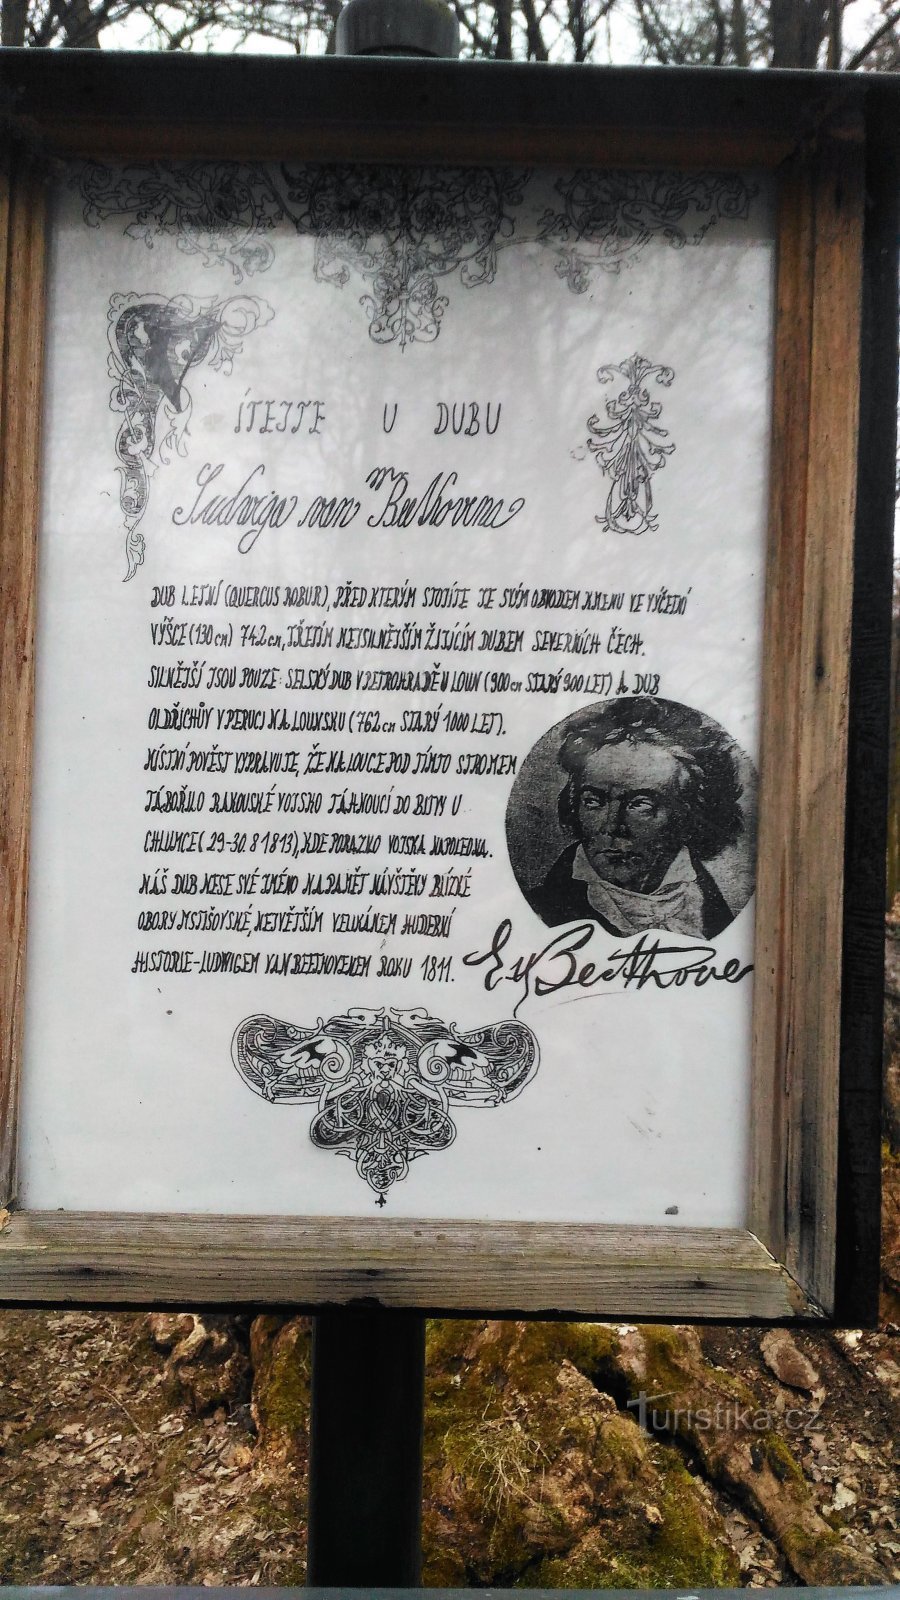 VÍTEJTE U DUBU
Ludwiga van Beethovena
DUB LETNÍ (QUERCUS ROBUR), PŘED KTERÝM STOJÍTE JE SVÝM OBVODEM KMENU VE VÝČETNÍ
VÝŠCE (130 cm) 742 cm, TŘETÍM NEJSILNĚJŠÍM ŽIJÍCÍM DUBEM SEVERNÍCH ČECH.
SILNĚJŠÍ JSOU POUZE: SELSKÝ DUB V PETROHRADĚ U LOUN (900 cm STARÝ 900 LET) A DUB
OLDŘICHŮV V PERUCI NA LOUNSKU (762 cm STARÝ 1000 LET).
MÍSTNÍ POVĚST VYPRAVUJE, ŽE NA LOUCE POD TÍMTO STROMEM
TÁBOŘILO RAKOUSKÉ VOJSKO TÁHNOUCÍ DO BITVY U
CHLUMCE (29-30.8 1813), KDE PORAZILO VOJSKA NAPOLEONA.
NÁŠ DUB NESE SVÉ JMÉNO NA PAMĚT NÁVŠTĚVY BLÍZKÉ
OBORY MSTIŠOVSKÉ, NEJVĚTŠÍM VELIKÁNEM HUDEBNÍ
HISTORIE-LUDWIGEM VAN BEETHOVENEM ROKU 1811.
Beethoven
Turistika.cz